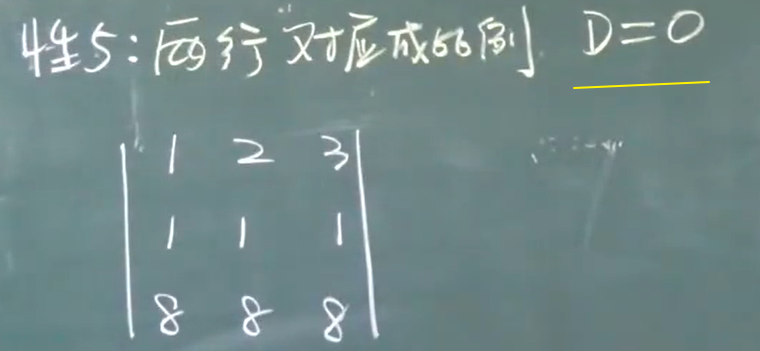 性5:两行对应成比例 D=0
1 2 3
1 1 1
8 8 8